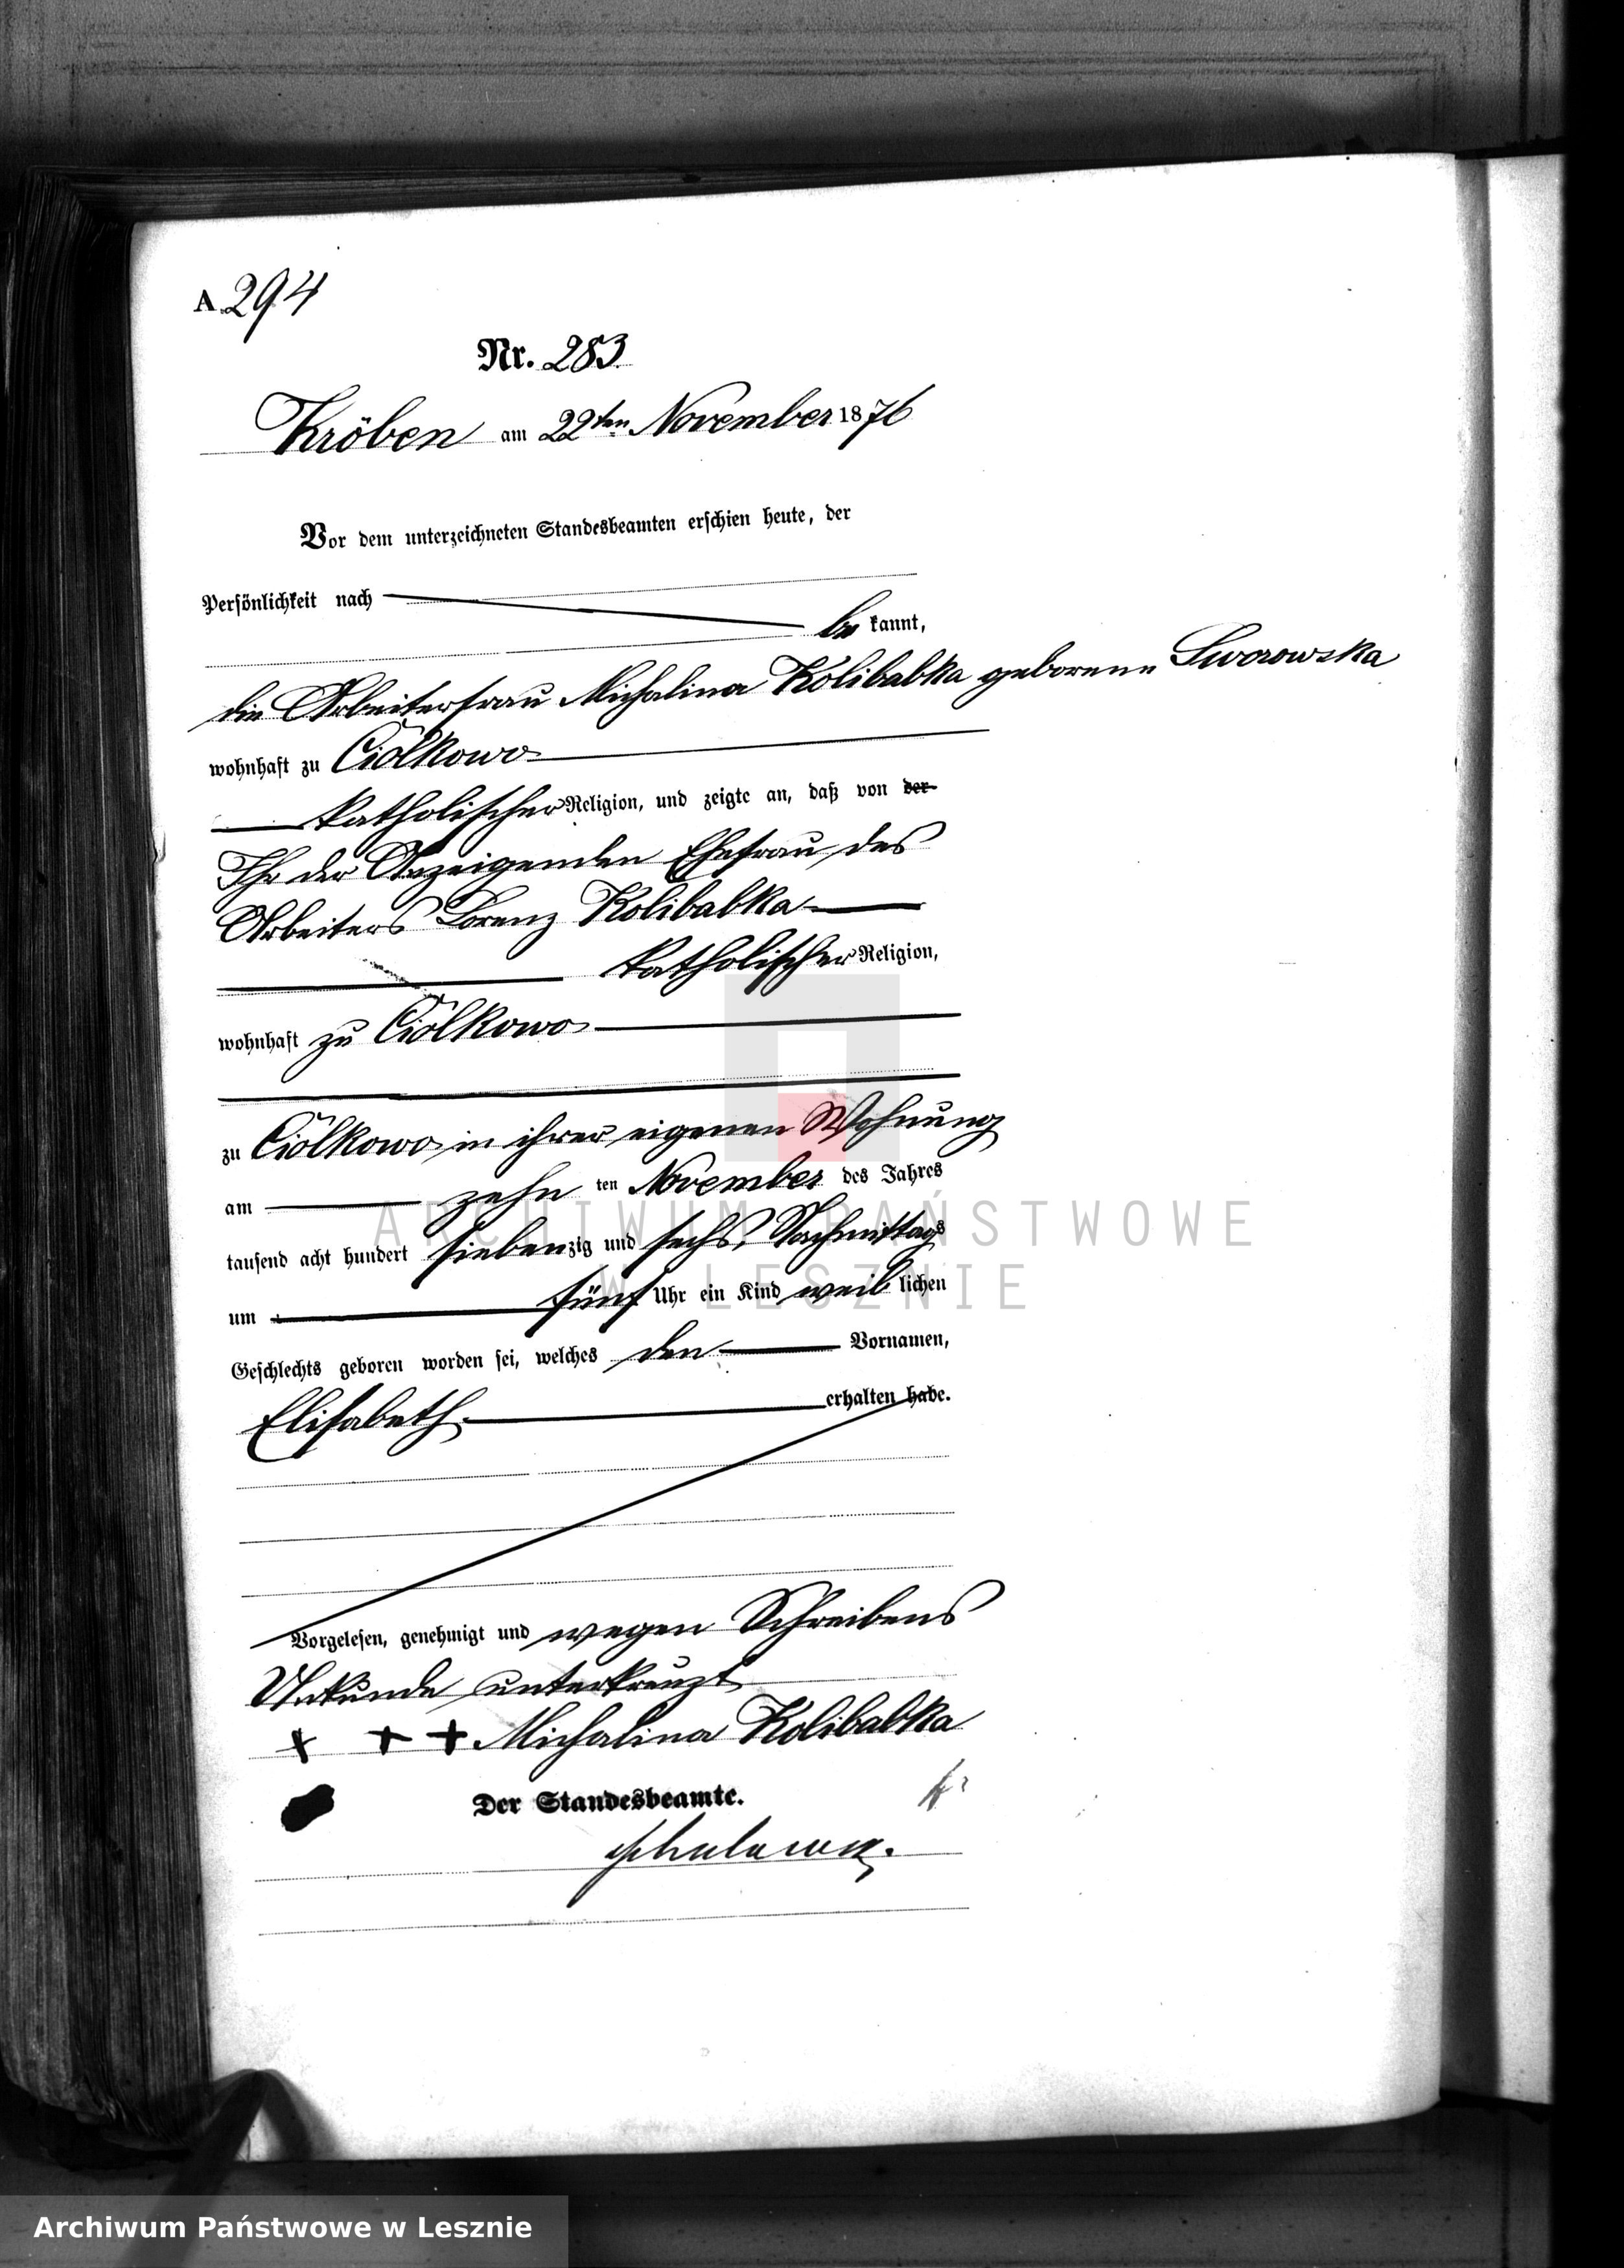 A. 294
Nr. 283.
Kröben am 22ten November 1876
Vor dem unterzeichneten Standesbeamten erschien heute, der
Persönlichkeit nach
be kannt,
die Arbeiterfrau Michalina Kolibabka geborene Sworowska
wohnhaft zu Ciołkowo
katholischer Religion, und zeigte an, daß von der
Ihr der Anzeigenden Ehefrau des
Arbeiters Lorenz Kolibabka
katholischer Religion,
wohnhaft zu Ciołkowo
zu Ciołkowo in ihrer eigenen Wohnung
am zehn ten November des Jahres
tausend acht hundert siebenzig und sechs, Nachmittags
um fünf Uhr ein Kind weiblichen
Geschlechts geboren worden sei, welches den Vornamen,
Elisabeth erhalten habe.
Vorgelesen, genehmigt und wegen Schreibens
Unkunde unterkreuzt
+ + + Michalina Kolibabka
Der Standesbeamte.
ARCHIWUM PAŃSTWOWE
W LESZNIE
Archiwum Państwowe w Lesznie